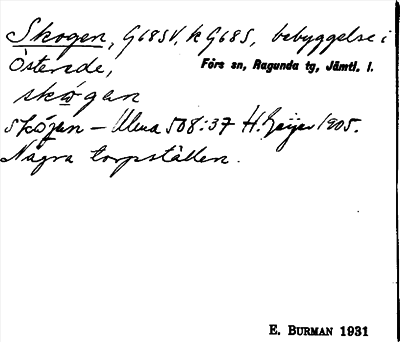 Skogen, G68SV, k G68S, bebyggelse i
Österede, Fors sn, Ragunda tg, Jämtl. l.
skógan
skógan – Ulma 508:37 H. Geijer 1905.
Några torpställen.
E. BURMAN 1931